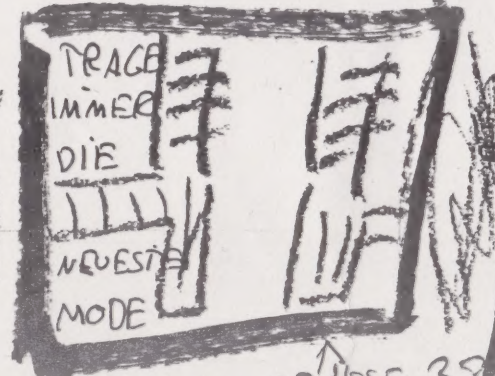 TRAGE
IMMER
DIE
NEUESTE
MODE
HOSE 38